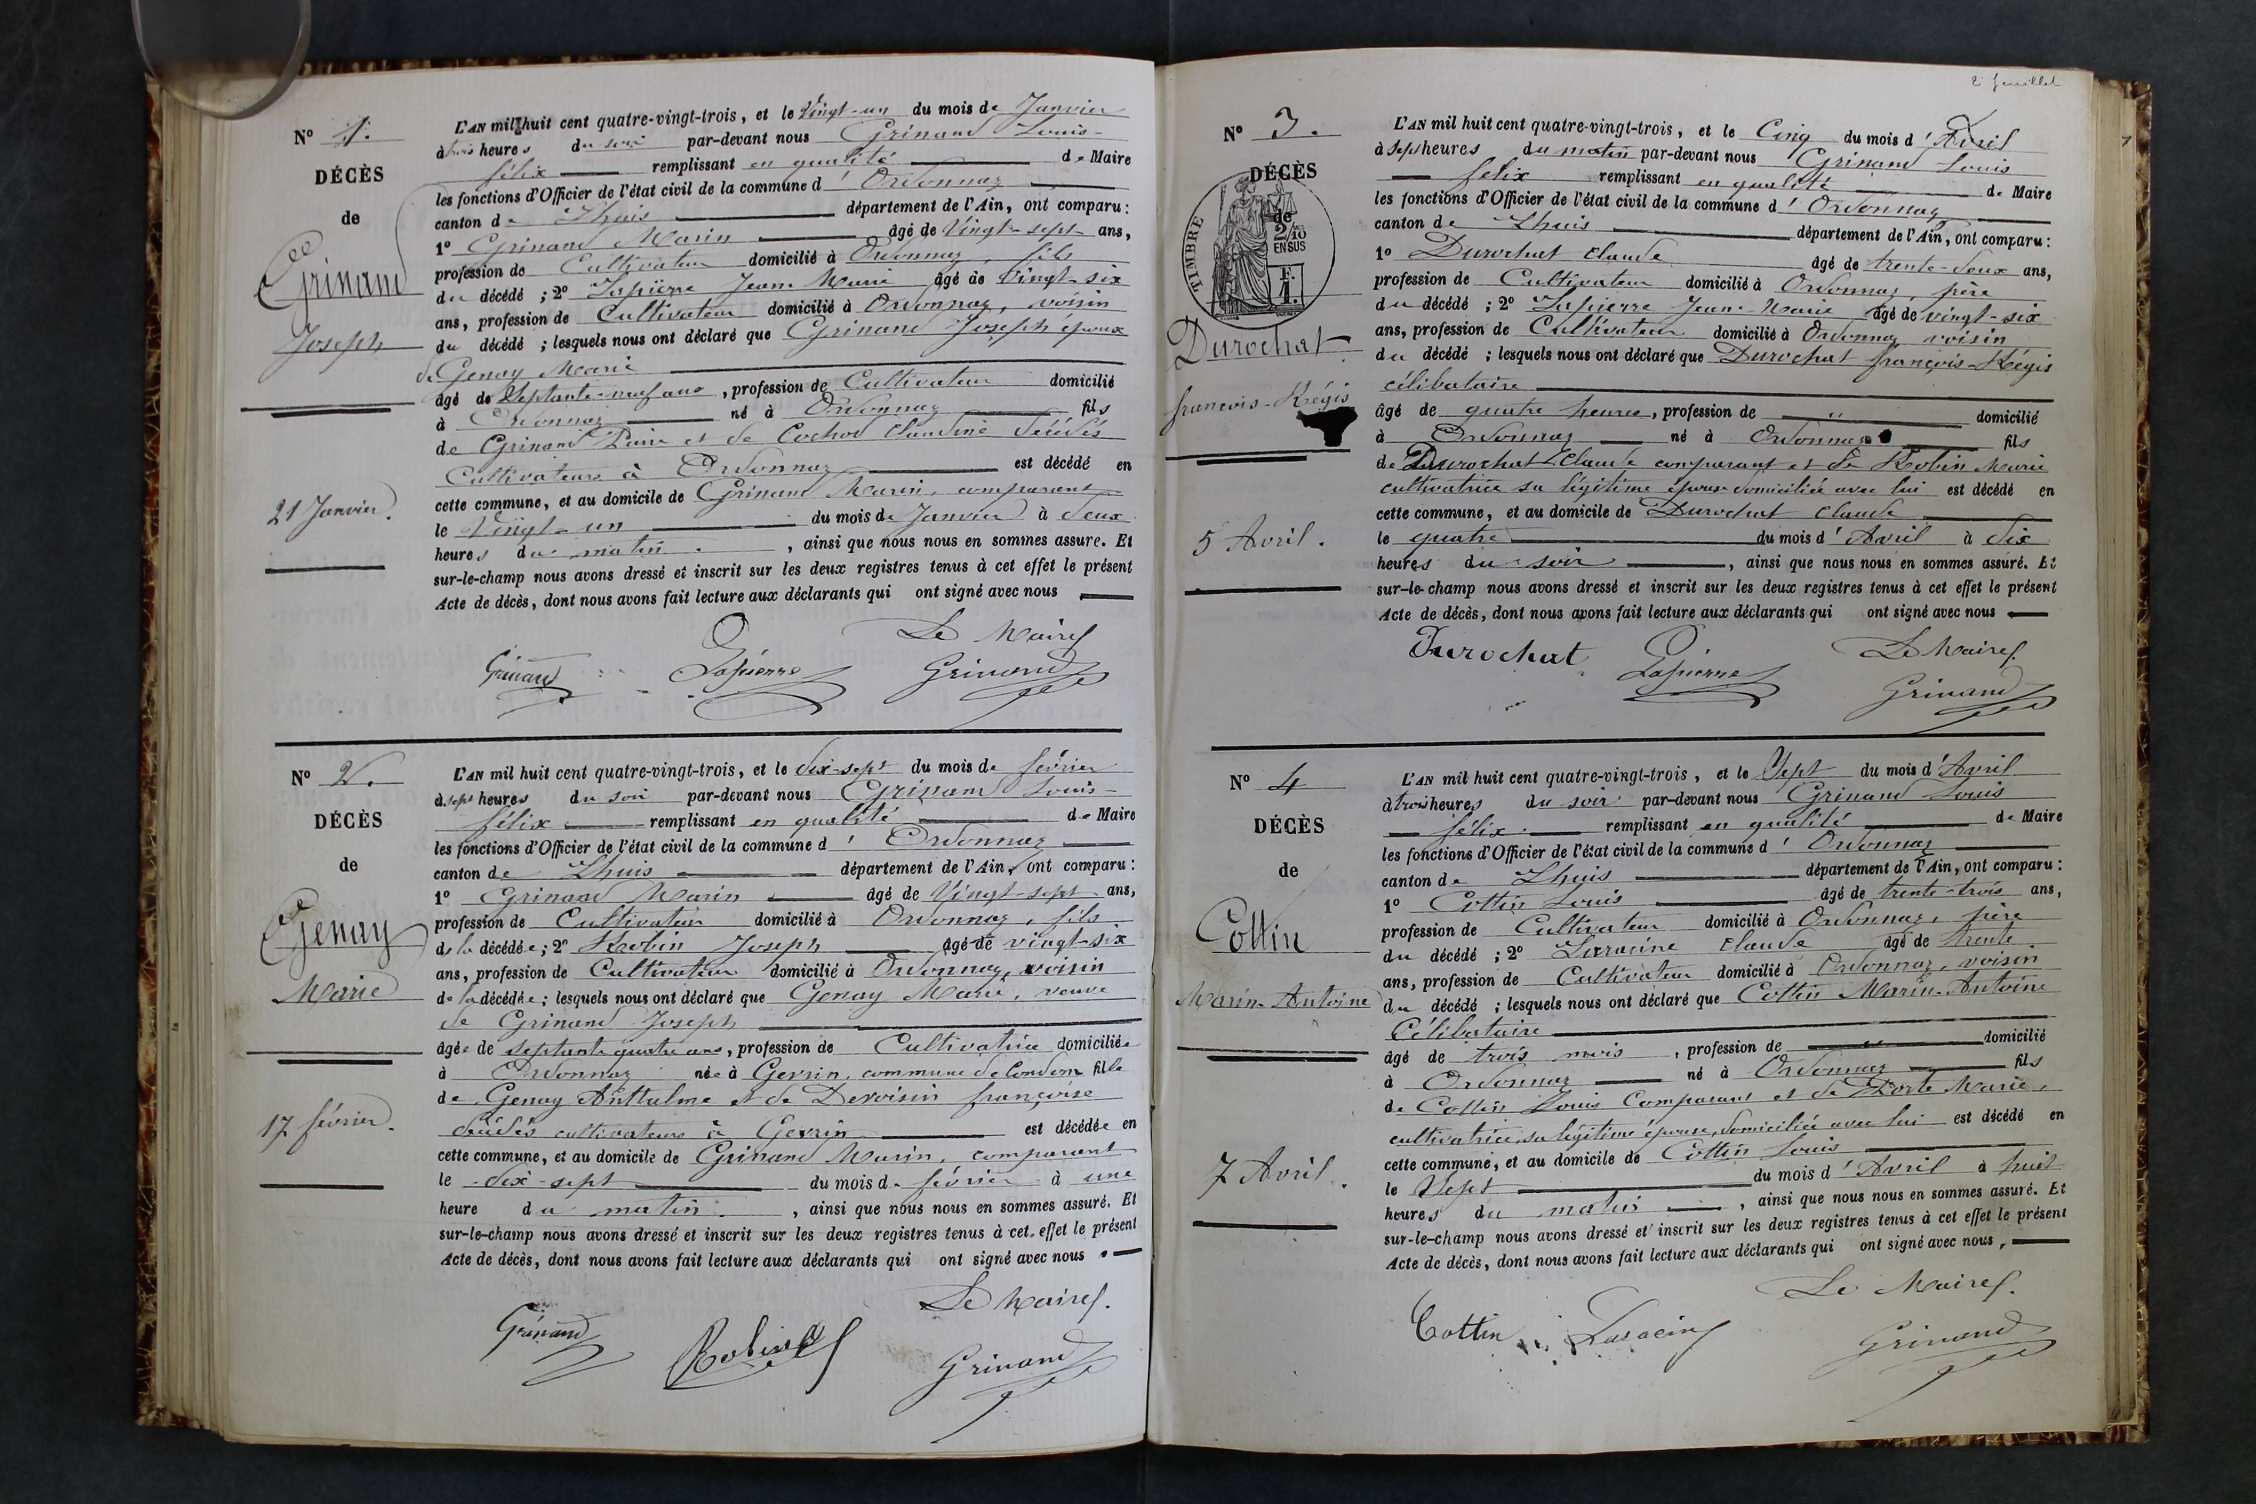 N° 1.
DÉCÈS
de
Grinand
Joseph
21 Janvier.
L'AN mil huit cent quatre-vingt-trois, et le Vingt-un du mois de Janvier
à trois heures du soir par-devant nous Grinand Louis-
félix remplissant en qualité de Maire
les fonctions d'Officier de l'état civil de la commune d'Ordonnaz
canton de Lhuis département de l'Ain, ont comparu :
1° Grinand Marin âgé de Vingt-sept ans,
profession de Cultivateur domicilié à Ordonnaz, fils
du décédé ; 2° Lapierre Jean Marie âgé de Vingt-six
ans, profession de Cultivateur domicilié à Ordonnaz, voisin
du décédé ; lesquels nous ont déclaré que Grinand Joseph époux
de Genay Marie
âgé de Septante-neuf ans, profession de Cultivateur domicilié
à Ordonnaz né à Ordonnaz fils
de Grinand et de Cochod Claudine décédés
Cultivateurs à Ordonnaz est décédé en
cette commune, et au domicile de Grinand Marin, comparant
le Vingt-un du mois de Janvier à deux
heures du matin, ainsi que nous nous en sommes assuré. Et
sur-le-champ nous avons dressé et inscrit sur les deux registres tenus à cet effet le présent
Acte de décès, dont nous avons fait lecture aux déclarants qui ont signé avec nous
Le Maire
Grinand Lapierre Grinand
N° 2.
DÉCÈS
de
Genay
Marie
17 février.
L'AN mil huit cent quatre-vingt-trois, et le dix-sept du mois de février
à sept heures du soir par-devant nous Grinand Louis-
félix remplissant en qualité de Maire
les fonctions d'Officier de l'état civil de la commune d'Ordonnaz
canton de Lhuis département de l'Ain, ont comparu :
1° Grinand Marin âgé de Vingt-sept ans,
profession de Cultivateur domicilié à Ordonnaz, fils
de la décédée ; 2° Robin Joseph âgé de vingt-six
ans, profession de Cultivateur domicilié à Ordonnaz, voisin
de la décédée ; lesquels nous ont déclaré que Genay Marie, veuve
de Grinand Joseph
âgée de septante quatre ans, profession de Cultivatrice domiciliée
à Ordonnaz née à Gevrin, commune de Condon fille
de Genay Anthelme et de Devoisin françoise
décédés cultivateurs à Gevrin est décédée en
cette commune, et au domicile de Grinand Marin, comparant
le dix-sept du mois de février à une
heure du matin, ainsi que nous nous en sommes assuré. Et
sur-le-champ nous avons dressé et inscrit sur les deux registres tenus à cet effet le présent
Acte de décès, dont nous avons fait lecture aux déclarants qui ont signé avec nous.
Le Maire.
Grinand Robin Grinand
2e feuillet
7
N° 3.
DÉCÈS
de
TIMBRE
2/10
EN SUS
F.
1.
Durochat
françois-Régis
5 Avril.
L'AN mil huit cent quatre-vingt-trois, et le Cinq du mois d'Avril
à sept heures du matin par-devant nous Grinand Louis
félix remplissant en qualité de Maire
les fonctions d'Officier de l'état civil de la commune d'Ordonnaz
canton de Lhuis département de l'Ain, ont comparu :
1° Durochat Claude âgé de trente-deux ans,
profession de Cultivateur domicilié à Ordonnaz, père
du décédé ; 2° Lapierre Jean-Marie âgé de vingt-six
ans, profession de Cultivateur domicilié à Ordonnaz voisin
du décédé ; lesquels nous ont déclaré que Durochat françois-Régis
célibataire
âgé de quatre heures, profession de " domicilié
à Ordonnaz né à Ordonnaz fils
de Durochat Claude comparant et de Robin Marie
cultivatrice sa légitime épouse domiciliée avec lui est décédé en
cette commune, et au domicile de Durochat Claude
le quatre du mois d'Avril à dix
heures du soir, ainsi que nous nous en sommes assuré. Et
sur-le-champ nous avons dressé et inscrit sur les deux registres tenus à cet effet le présent
Acte de décès, dont nous avons fait lecture aux déclarants qui ont signé avec nous
Durochat Lapierre Le Maire.
Grinand
N° 4
DÉCÈS
de
Cottin
Marin-Antoine
7 Avril.
L'AN mil huit cent quatre-vingt-trois, et le Sept du mois d'Avril
à trois heures du soir par-devant nous Grinand Louis
félix remplissant en qualité de Maire
les fonctions d'Officier de l'état civil de la commune d'Ordonnaz
canton de Lhuis département de l'Ain, ont comparu :
1° Cottin Louis âgé de trente-trois ans,
profession de Cultivateur domicilié à Ordonnaz, père
du décédé ; 2° Laracine Claude âgé de trente
ans, profession de Cultivateur domicilié à Ordonnaz, voisin
du décédé ; lesquels nous ont déclaré que Cottin Marin-Antoine
Célibataire
âgé de trois mois, profession de " domicilié
à Ordonnaz né à Ordonnaz fils
de Cottin Louis Comparant et de Marie,
cultivatrice, sa légitime épouse, domiciliée avec lui est décédé en
cette commune, et au domicile de Cottin Louis
le Sept du mois d'Avril à huit
heures du matin, ainsi que nous nous en sommes assuré. Et
sur-le-champ nous avons dressé et inscrit sur les deux registres tenus à cet effet le présent
Acte de décès, dont nous avons fait lecture aux déclarants qui ont signé avec nous,
Le Maire.
Cottin Laracine Grinand